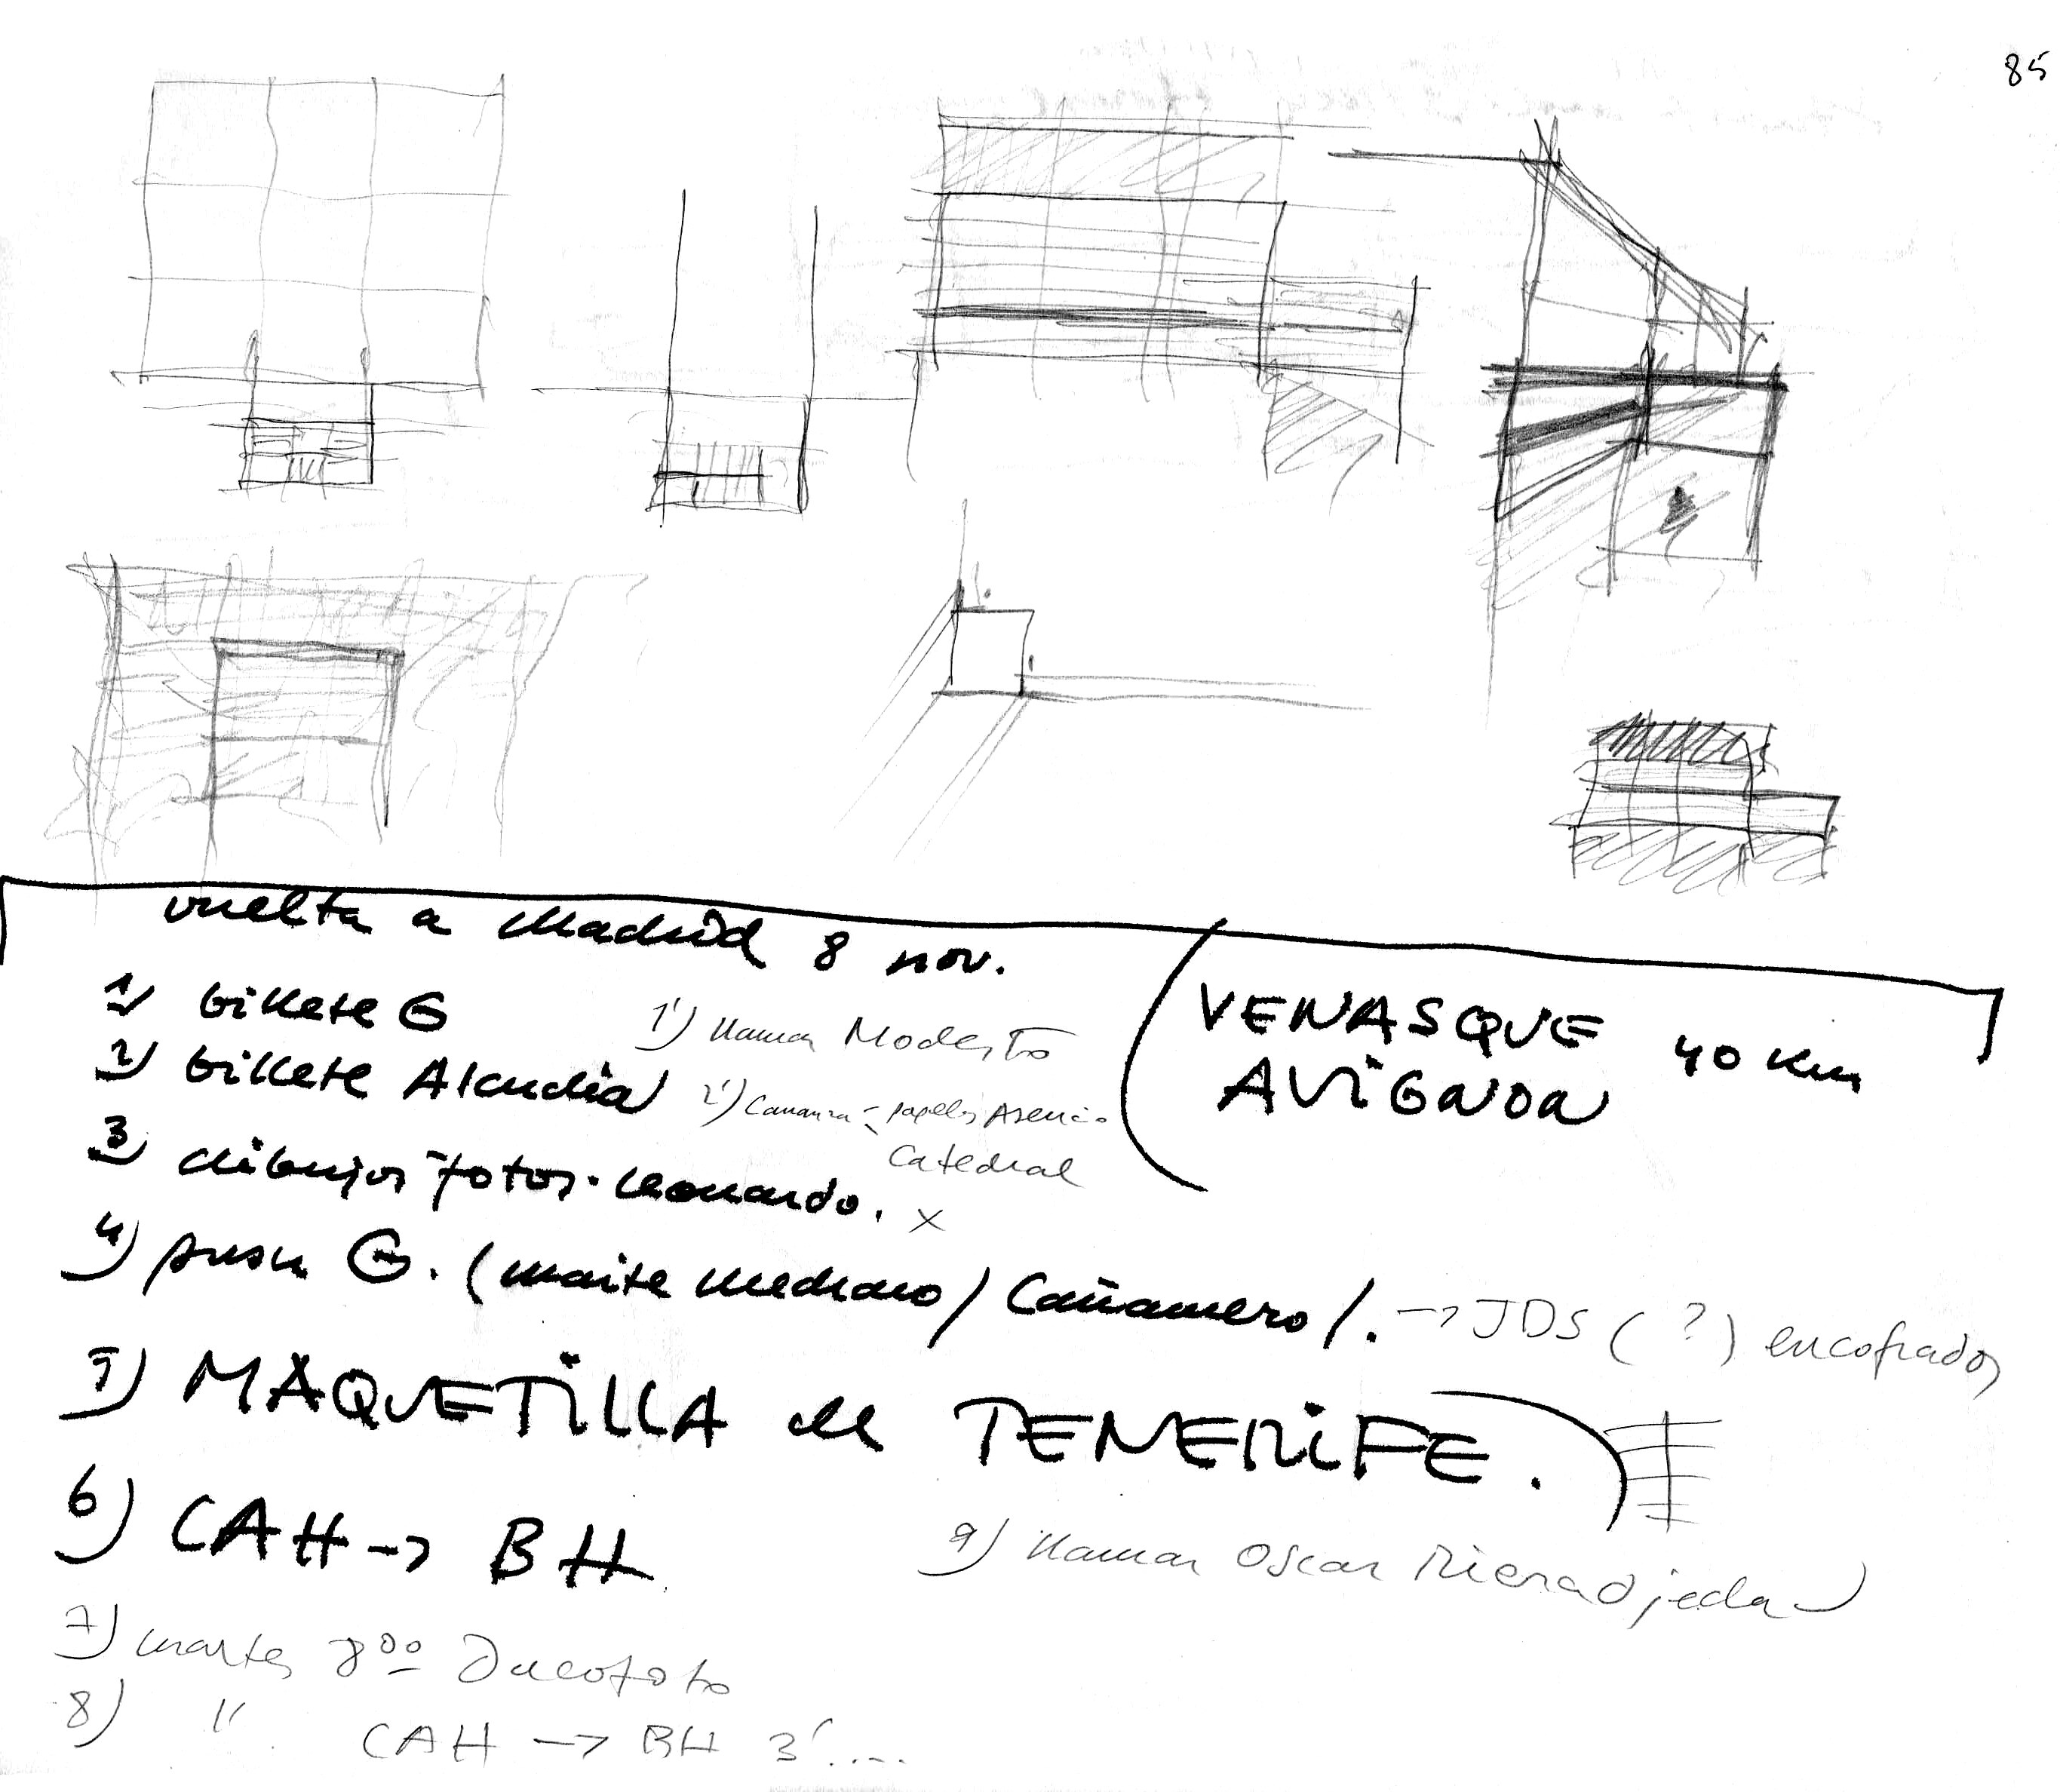 85
vuelta a Madrid 8 nov.
1) billete G
1') llamar Modesto
2) billete Alcudia
2') papeles Asencio
Catedral
3) dibujos fotos. Leonardo. x
4) G. (Maite Medrano / Cañamero /. → JDS (?) encofrados
5) MAQUETILLA de TENERIFE.
6) CAH → BH
7) martes 8⁰⁰ Ducofoto
8) " CAH → BH 3'....
9) llamar Oscar Riera Ojeda
VENASQUE 40 km
AVIGNON